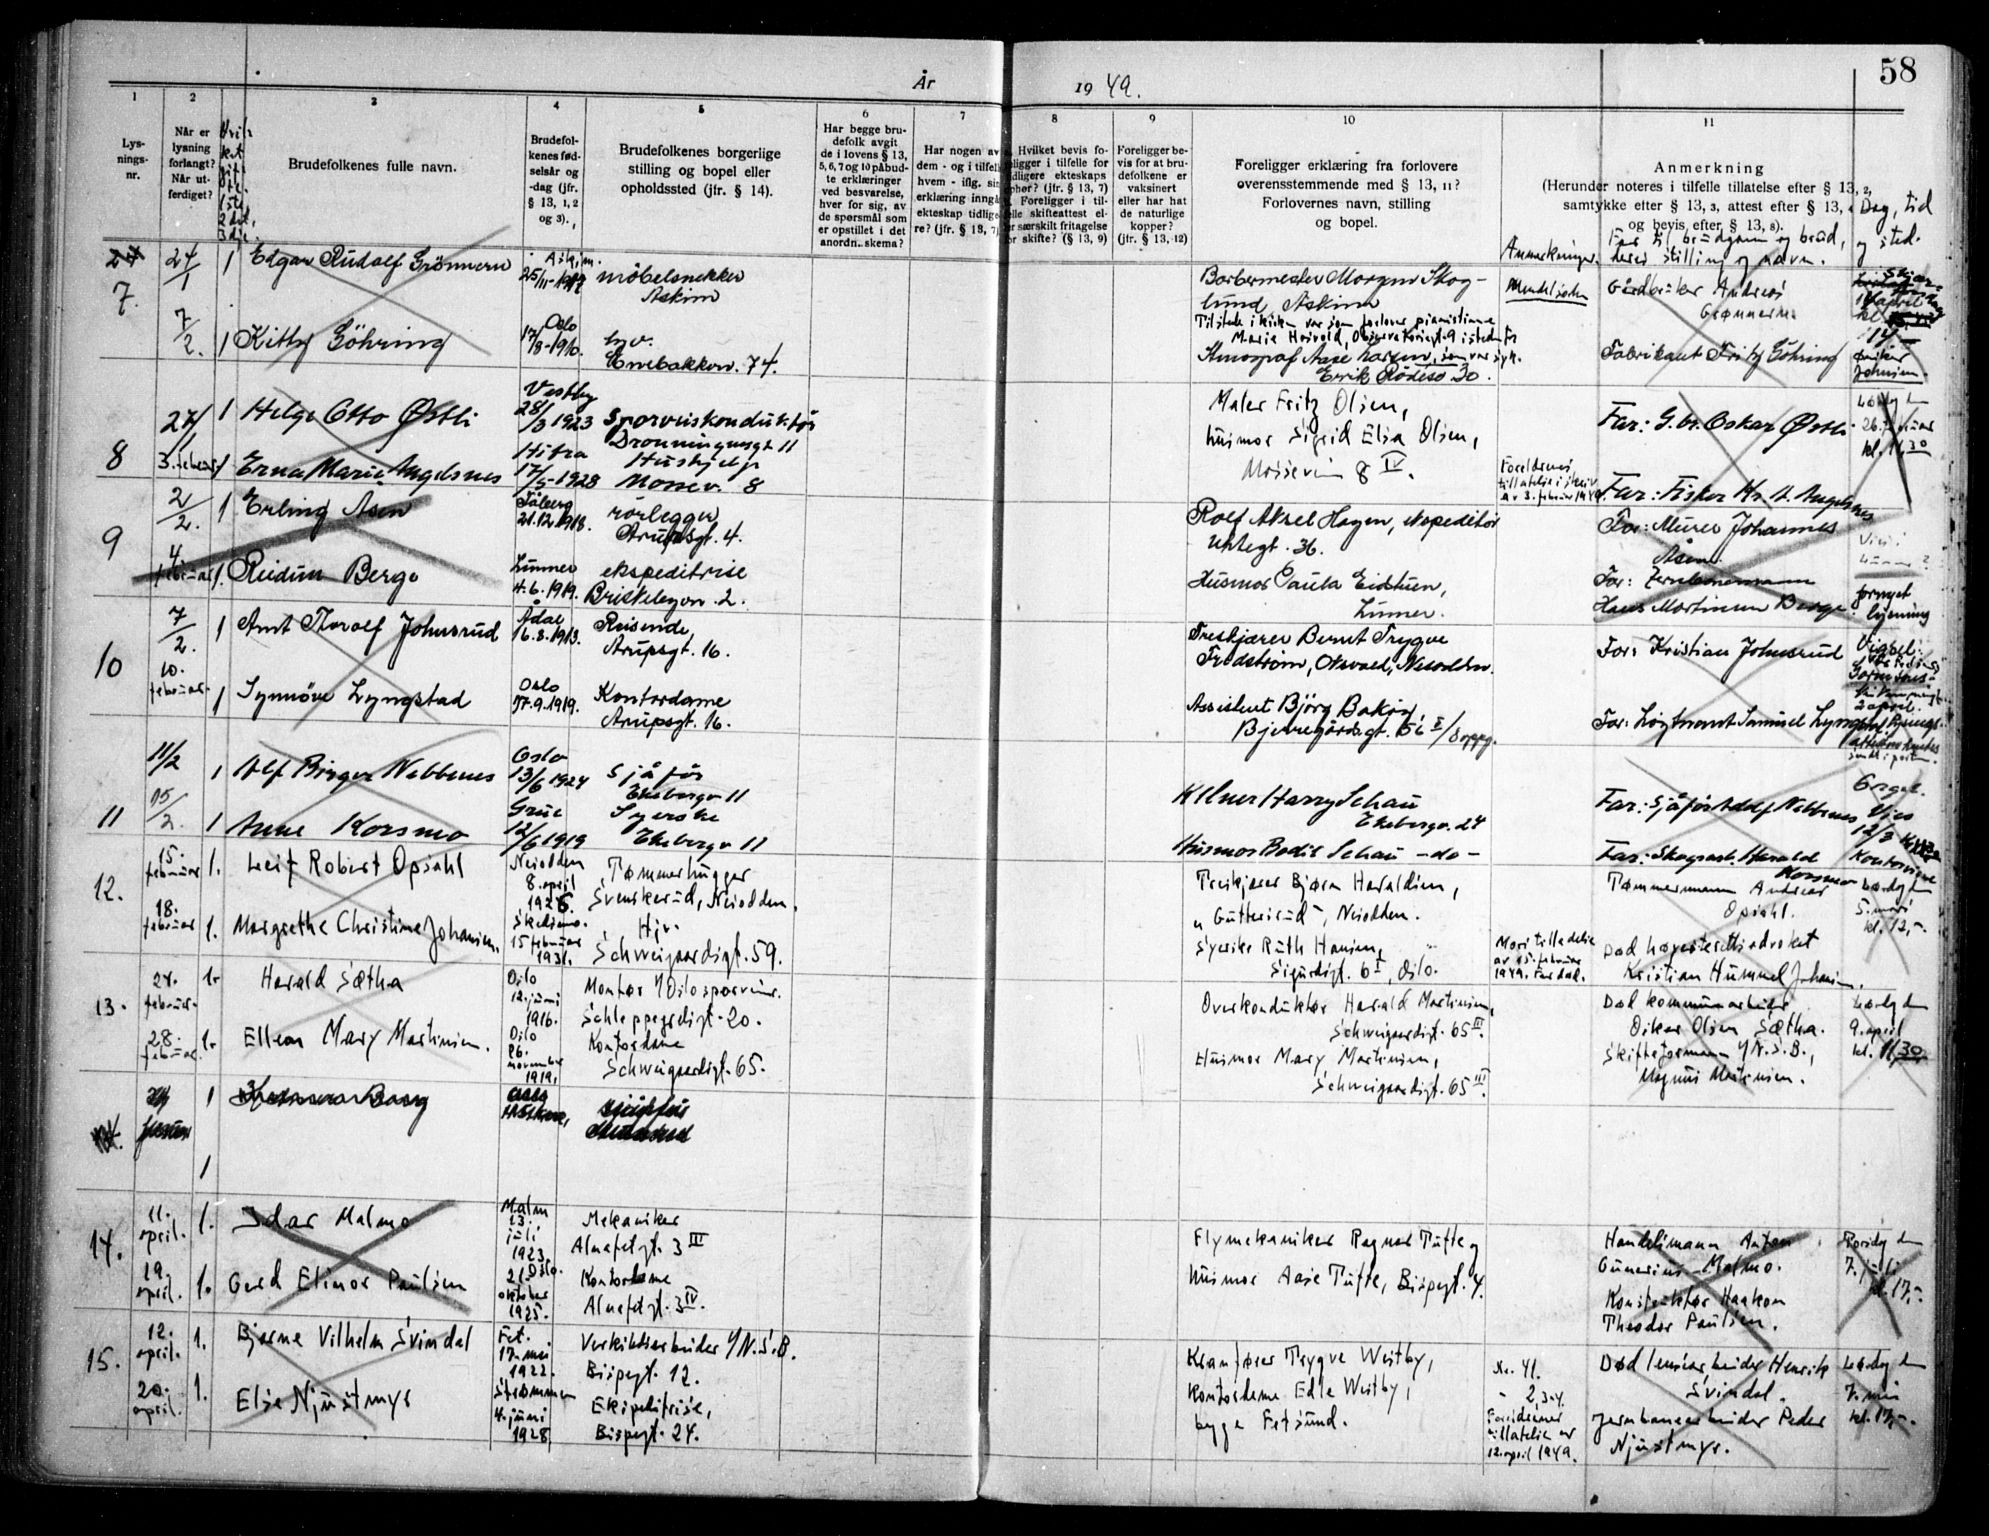 58
År
19 49.
1
2
3
4
5
6
7
8
9
10
11
Lys-
nings-
nr.
Når er
lysning
forlangt?
Når ut-
ferdiget?
Brudefolkenes fulle navn.
Brudefol-
kenes fød-
selsår og
-dag (jfr.
§ 13, 1, 2
og 3).
Brudefolkenes borgerlige
stilling og bopel eller
opholdssted (jfr. § 14).
Har begge bru-
defolk avgit
de i lovens § 13,
5, 6, 7 og 10 påbud-
te erklæringer
ved besvarelse,
hver for sig, av
de spørsmål som
er opstillet i det
anordn. skema?
Har nogen av
dem - og i tilfelle
hvem - iflg. sin
erklæring inngå
ekteskap tidlige-
re? (jfr. § 13, 7)
Hvilket bevis fo-
religger i tilfelle for
tidligere ekteskaps
ophør? (jfr. § 13, 7)
Foreligger i til-
felle skifteattest el-
ler særskilt fritagelse
for skifte? (§ 13, 9)
Foreligger be-
vis for at bru-
defolkene er
vaksinert
eller har hat
de naturlige
kopper?
(jfr. § 13, 12)
Foreligger erklæring fra forlovere
overensstemmende med § 13, 11?
Forlovernes navn, stilling
og bopel.
Anmerkning
(Herunder noteres i tilfelle tillatelse efter § 13, 2,
samtykke efter § 13, 3, attest efter § 13, 4
og bevis efter § 13, 8).
Anmerkninger.
Far til brudgom og brud,
deres stilling og navn.
Dag, tid
og sted.
7.
24/1
1 Edgar Rudolf Grönnern
25/11-1917
möbelsnekker
Askim
Barbermester Morgan Skog-
lund, Askim
Gårdbruker Andreas
Grønnern
7/2.
1 Kitty Göhring
Oslo
17/8-1910.
Enebakkvn. 74.
Tilstede i kirken var som forlover pianistinne
Marie
Erik Rödesø 30.
Fabrikant Fritz Göhring
8
27/1
1 Helge Otto Østli
Vestby
28/3 1923
Sporveiskonduktør
Dronningensgt 11
Maler Fritz Olsen,
husmor Sigrid Elsa Olsen,
Mosseveien 8 IV.
Far: G.br. Oskar Østli
26. februar
kl. 11,30
3. februar
1 Erna Marie Angelsnes
Hitra
17/5-1928
Hushjelp
Mossev. 8
Foreldrenes
tillatelse i skriv
av 3. februar 1949
Far: Fisker Kr. A. Angelsnes
9
2/2.
1 Erling Åsen
Fåberg
21.12.1918.
rörlegger
Arupsgt. 4.
Rolf Aksel Hagen, ekspeditør
Uelandsgt. 36.
Far: Murer Johannes
Åsen.
4. februar
1. Reidun Berge
Lunner
4.6.1919.
ekspeditrise
Briskebyvn. 2.
Husmor Paula Eidtuen,
Lunner.
Far: Jernbanemann
Hans Martinsen Berge
fornyet
lysning
10
7/2.
1 Arnt Thoralf Johnsrud
Ådal
16.3.1913.
Reisende
Arupsgt. 16.
Treskjærer Bernt Trygve
Fredstrøm, Oksvald, Nesodden.
Far: Kristian Johnsrud
10. februar.
1 Synnöve Lyngstad
Oslo
17.9.1919.
Kontordame
Arupsgt. 16.
Assistent Björg Bakøy
Bjerregårdsgt. 56 I / 3 oppg.
Far: Löytnant Samuel Lyngstad
2 april.
11
11/2
1 Alf Birger Nebbenes
Oslo
13/6 1924
Sjåfør
Ekebergv 11
Kelner Harry Schau
Ekebergv. 24
Far: Sjåfør Adolf Nebbenes
15/2.
1 Anne Korsmo
Grue
12/6 1919
Syerske
Ekebergv 11
Husmor Bodil Schau -do-
Far: Skogsarb. Harald
Korsmo
12.
15. februar
1. Leif Robert Opsahl
Nesodden
8. april
1926.
Tømmerhugger
Svenskerud, Nesodden.
Treskjærer Bjørn Haraldsen,
"Gutterud", Nesodden.
Tømmermann Andreas
Opsahl.
Lørdag den
5. mars
kl. 12,-.
18. februar
1. Margrethe Christine Johansen.
Skedsmo.
15 februar
1931.
Hjv.
Schweigaardsgt. 59.
Syerske Ruth Hansen,
Sigurdsgt. 6 I, Oslo.
Mors tilladelse
av 15. februar
1949. Far død.
Død høyesterettsadvokat
Kristian Hummel Johansen.
13.
24. februar.
1. Harald Sætha
Oslo
12. juni
1916.
Montør v/Oslo sporveier.
Schleppegrellsgt. 20.
Overkonduktør Harald Martinsen,
Schweigaardsgt. 65 III.
Død kommunearbeider
Oskar Olsen Sætha.
Lørdag den
9. april
kl. 11,30
28. februar.
1. Ellen Mary Martinsen.
Oslo
26.
november
1919.
Kontordame
Schweigaardsgt. 65.
Husmor Mary Martinsen,
Schweigaardsgt. 65 III.
Skifteformann v/N.S.B.,
Magnus Martinsen.
1
1
14.
11. april.
1. Idar Malmo
Malm
13.
juli
1923.
Mekaniker
Alnafetgt. 3 III
Flymekaniker Ragnar Tufte og
husmor Aase Tufte, Bispegt. 4.
Handelsmann Anton
Gunerius Malmo.
Torsdag den
7. juli
kl. 17,-.
19. april.
1. Gerd Elinor Paulsen
Oslo.
21.
oktober
1925.
Kontordame
Alnafetgt. 3 IV.
Konstruktør Haakon
Theodor Paulsen.
15.
12. april.
1. Bjarne Vilhelm Svindal
Fet.
17. mai
1922.
Verkstedarbeider v/N.S.B.
Bispegt. 12.
Kranfører Trygve Westby,
kontordame Edle Westby,
begge Fetsund.
Nr. 41.
" 2, 3-4.
Død lensearbeider Henrik
Svindal.
Lørdag den
7. mai
kl. 17,-.
20. april.
1. Else Njustmyr
Strømmen
4. juni
1928.
Ekspeditrise,
Bispegt. 24.
Foreldrenes
tillatelse av
12. april 1949.
Jernbanearbeider Peder
Njustmyr.